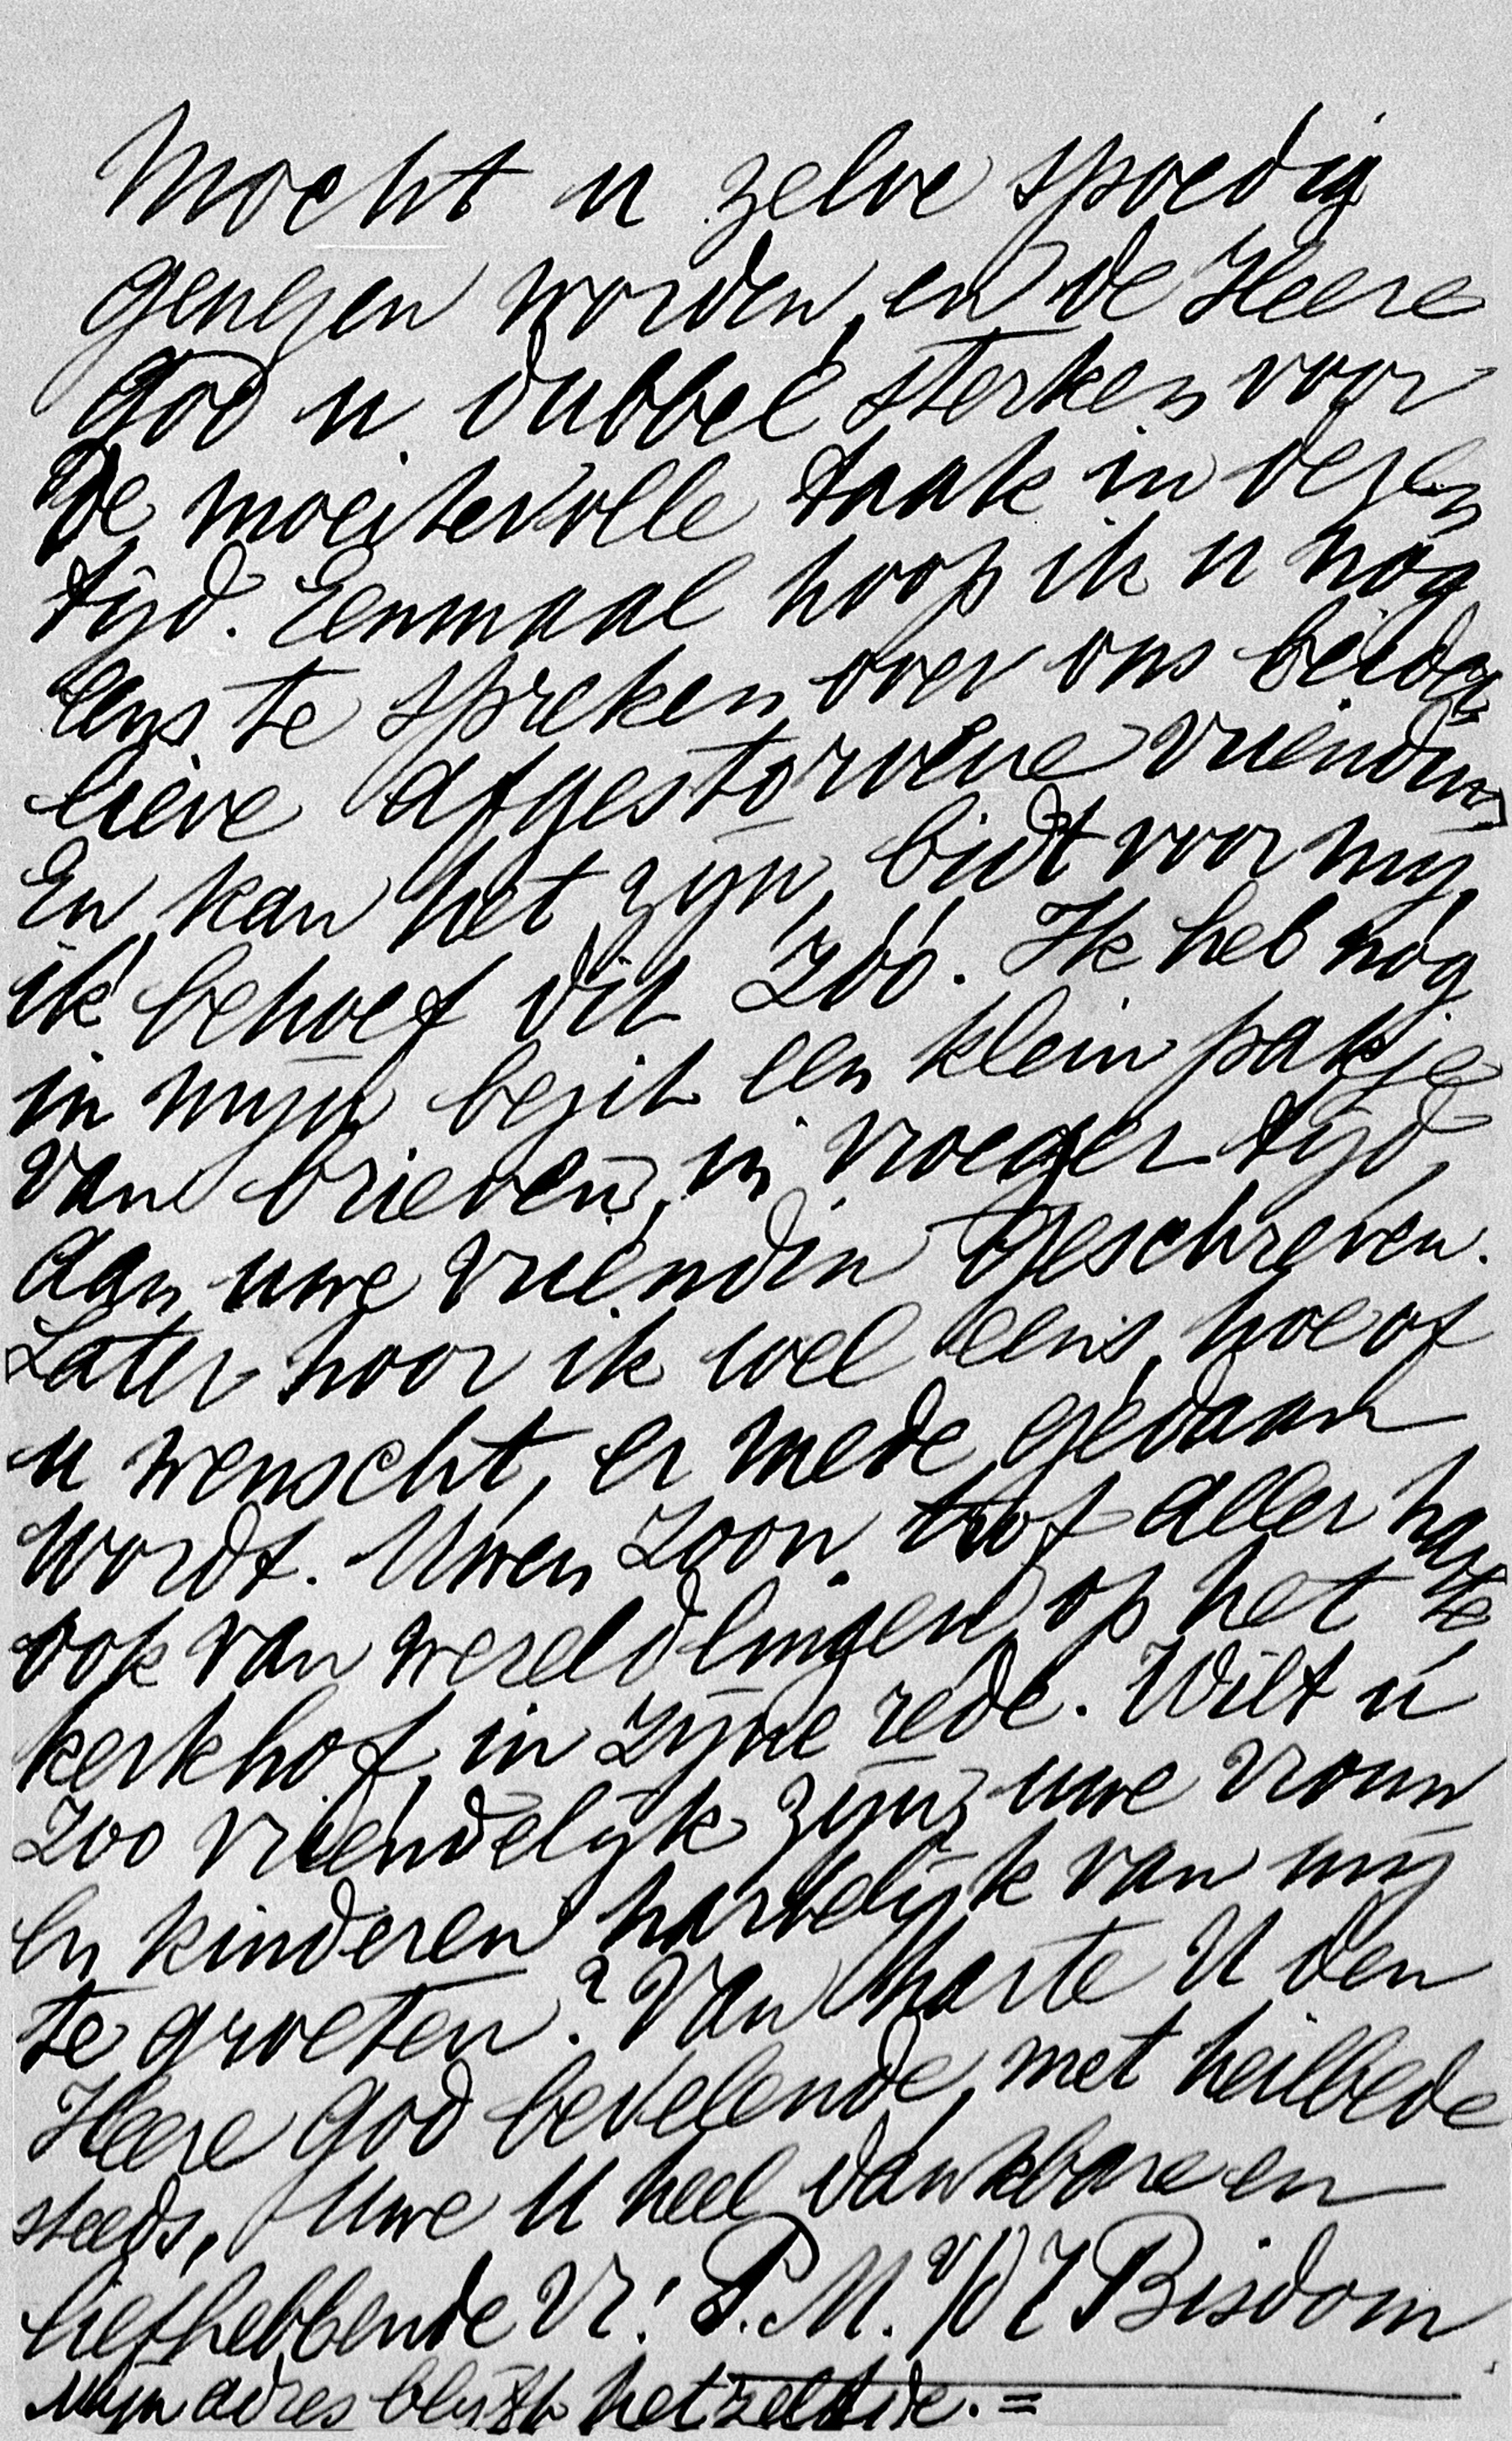 Mocht u zelve spoedig
genezen worden, en de Heere
God u dubbel sterken voor
de moeitevolle taak in dezen
tijd. Eenmaal hoop ik u nog
eens te spreken, over ons beider
lieve afgestorvene vriendin,
En kan het zijn, bidt voor mij,
ik behoef dit zóó. Ik heb nóg
in mijn bezit een klein pakje
van brieven, in vroeger tijd,
aan uwe vriendin geschreven.
Later hoor ik wel eens, hoe of
u wenscht, er mede gedaan
wordt. Uwen zoon trof aller harte
ook van wereldlingen op het
kerkhof, in zijne rede. Wilt u
zoo vriendelijk zijn, uwe vrouw
en kinderen hartelijk van mij
te groeten? Van harte U den
Heere God bevelende, met heilbede
steeds, Uwe U heel dankbare en
liefhebbende Vr! P. M. Bisdom
Mijn adres blijft hetzelfde. =